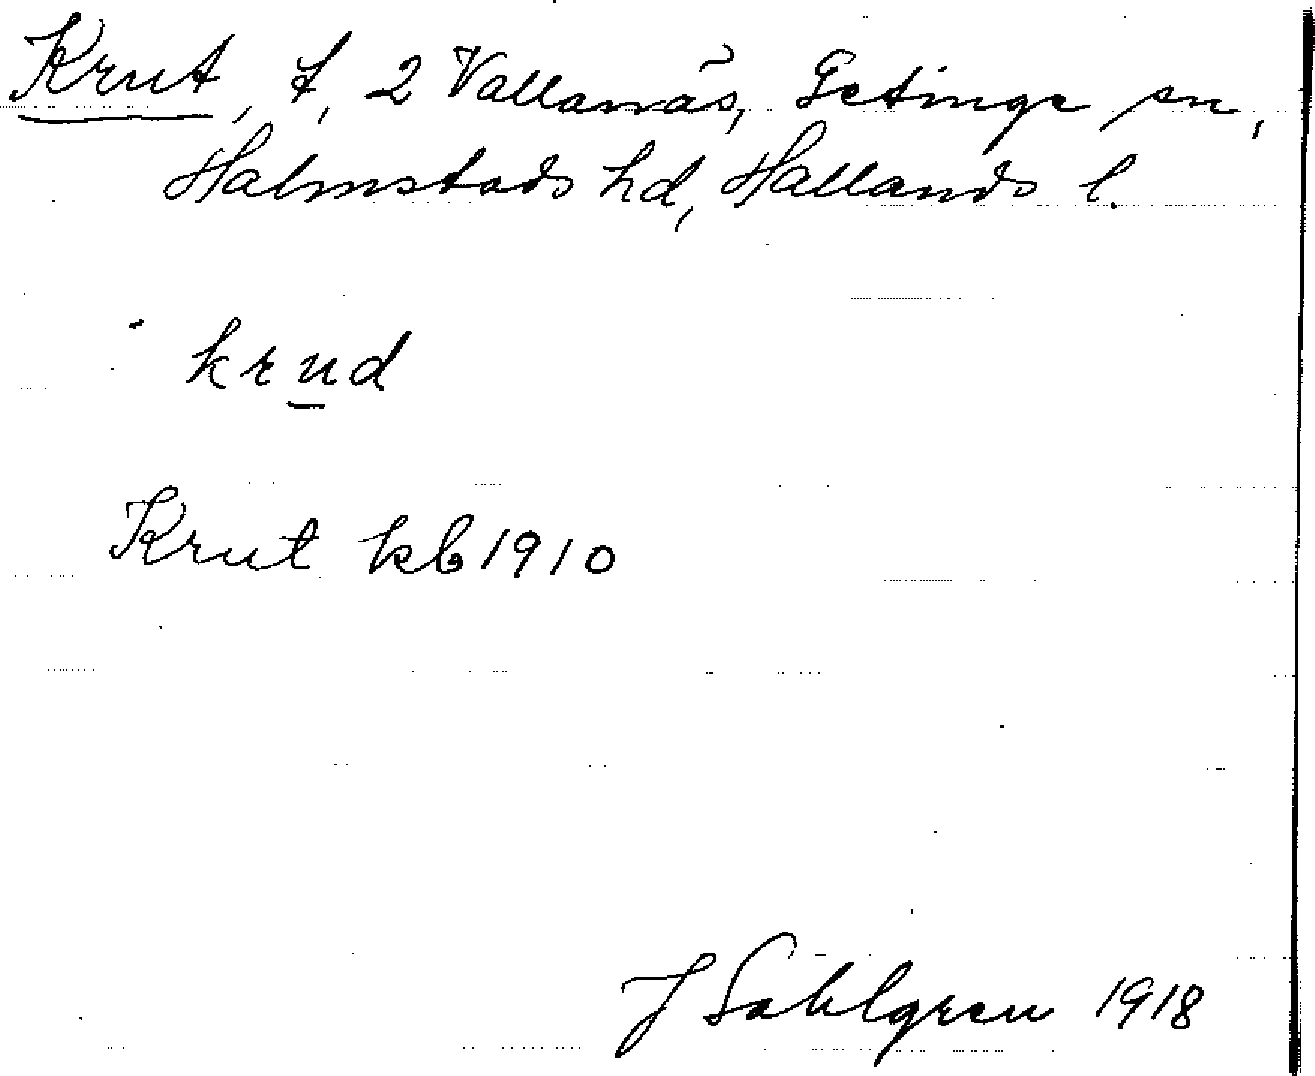 Krut, t, 2 Vallanäs, Getinge sn,
Halmstads hd, Hallands l.
krud
Krut kb 1910
J Sahlgren 1918